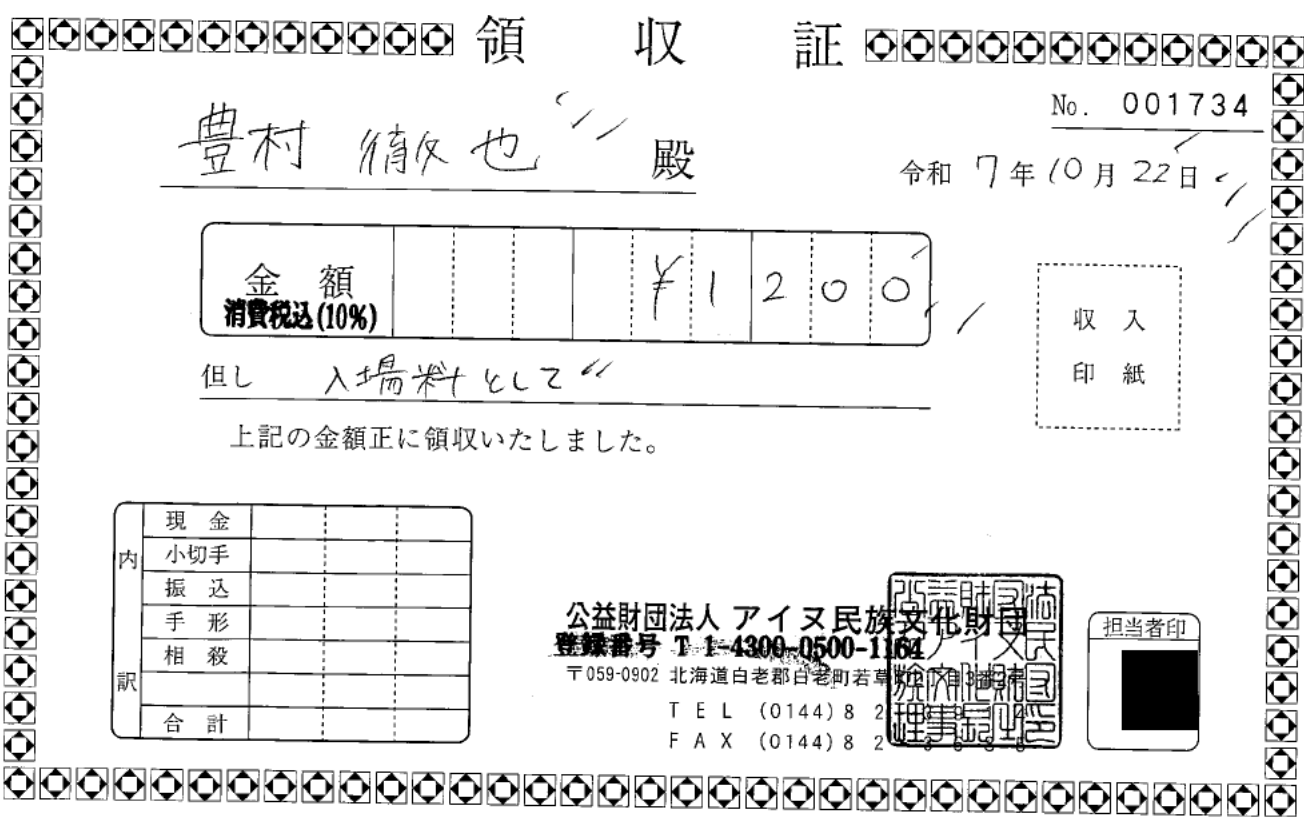 領収証
No. 001734
豊村 徹也 殿
令和 7年 10月 22日
金額 ¥1200
消費税込(10%)
但し 入場料として
上記の金額正に領収いたしました。
収入
印紙
内訳
現金
小切手
振込
手形
相殺
合計
公益財団法人 アイヌ民族文化財団
登録番号 T 1-4300-0500-1164
〒059-0902 北海道白老郡白老町若草町
TEL (0144)82
FAX (0144)82
担当者印